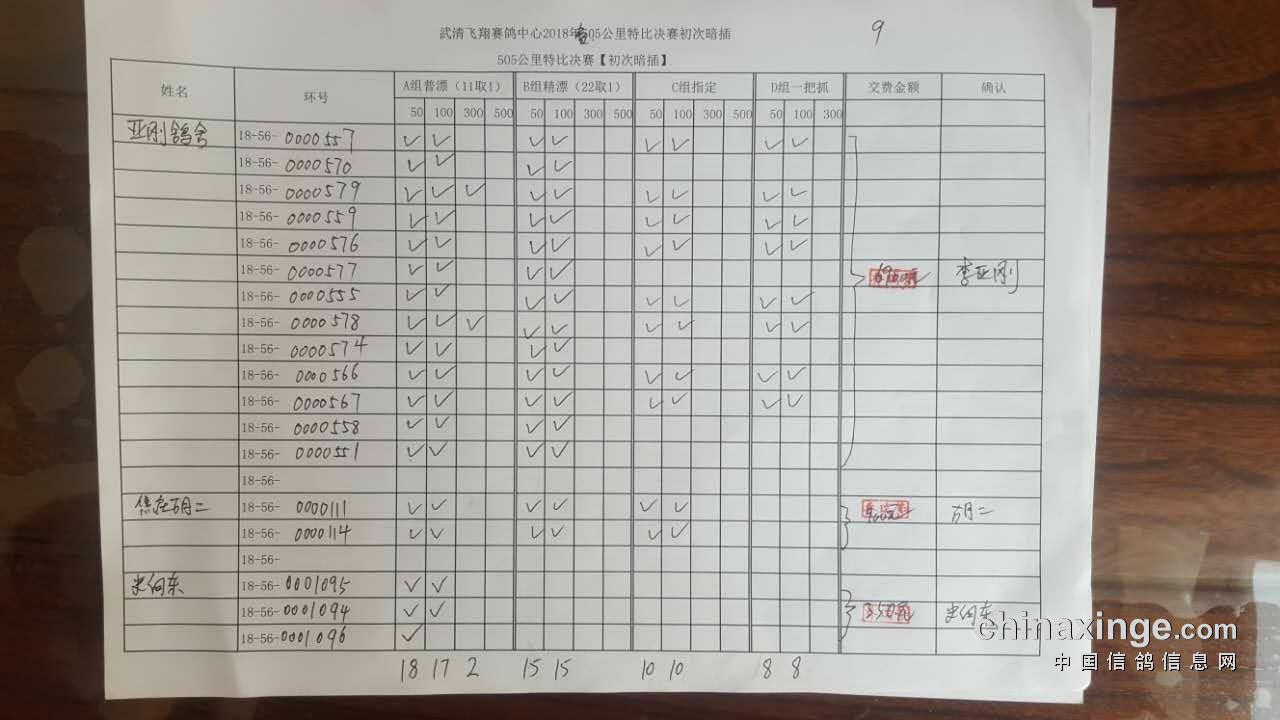 9
武清飞翔赛鸽中心2018年505公里特比决赛初次暗插
505公里特比决赛【初次暗插】
姓名 环号 A组普漂（11取1） B组精漂（22取1） C组指定 D组一把抓 交费金额 确认
50 100 300 500 50 100 300 500 50 100 300 500 50 100 300
亚刚鸽舍 18-56-0000557 ✓ ✓ ✓ ✓ ✓ ✓ ✓ ✓
18-56-0000570 ✓ ✓ ✓ ✓
18-56-0000579 ✓ ✓ ✓ ✓ ✓ ✓ ✓ ✓ ✓
18-56-0000559 ✓ ✓ ✓ ✓ ✓ ✓ ✓ ✓
18-56-0000576 ✓ ✓ ✓ ✓ ✓ ✓ ✓ ✓
18-56-0000577 ✓ ✓ ✓ ✓ 李亚刚
18-56-0000555 ✓ ✓ ✓ ✓ ✓ ✓ ✓ ✓
18-56-0000578 ✓ ✓ ✓ ✓ ✓ ✓ ✓ ✓ ✓
18-56-0000574 ✓ ✓ ✓ ✓
18-56-0000566 ✓ ✓ ✓ ✓ ✓ ✓ ✓ ✓
18-56-0000567 ✓ ✓ ✓ ✓ ✓ ✓ ✓ ✓
18-56-0000558 ✓ ✓ ✓ ✓
18-56-0000551 ✓ ✓ ✓ ✓
18-56-
焦庄胡二 18-56-0000111 ✓ ✓ ✓ ✓ ✓ ✓ 胡二
18-56-0000114 ✓ ✓ ✓ ✓ ✓ ✓
18-56-
史向东 18-56-0001095 ✓ ✓
18-56-0001094 ✓ ✓ 史向东
18-56-0001096 ✓
18 17 2 15 15 10 10 8 8
chinaxinge.com
中国信鸽信息网